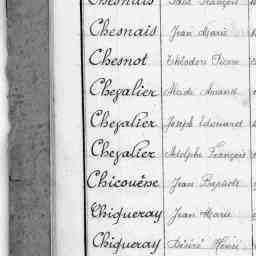 Chesnais
Chesnais Jean Marie
Chesnot Théodore Pierre
Chevalier Alcide Amand
Chevalier Joseph Edouard
Chevalier Adolphe François
Chicouène Jean Baptiste
Chiqueray Jean Marie
Chiqueray Désiré Henri